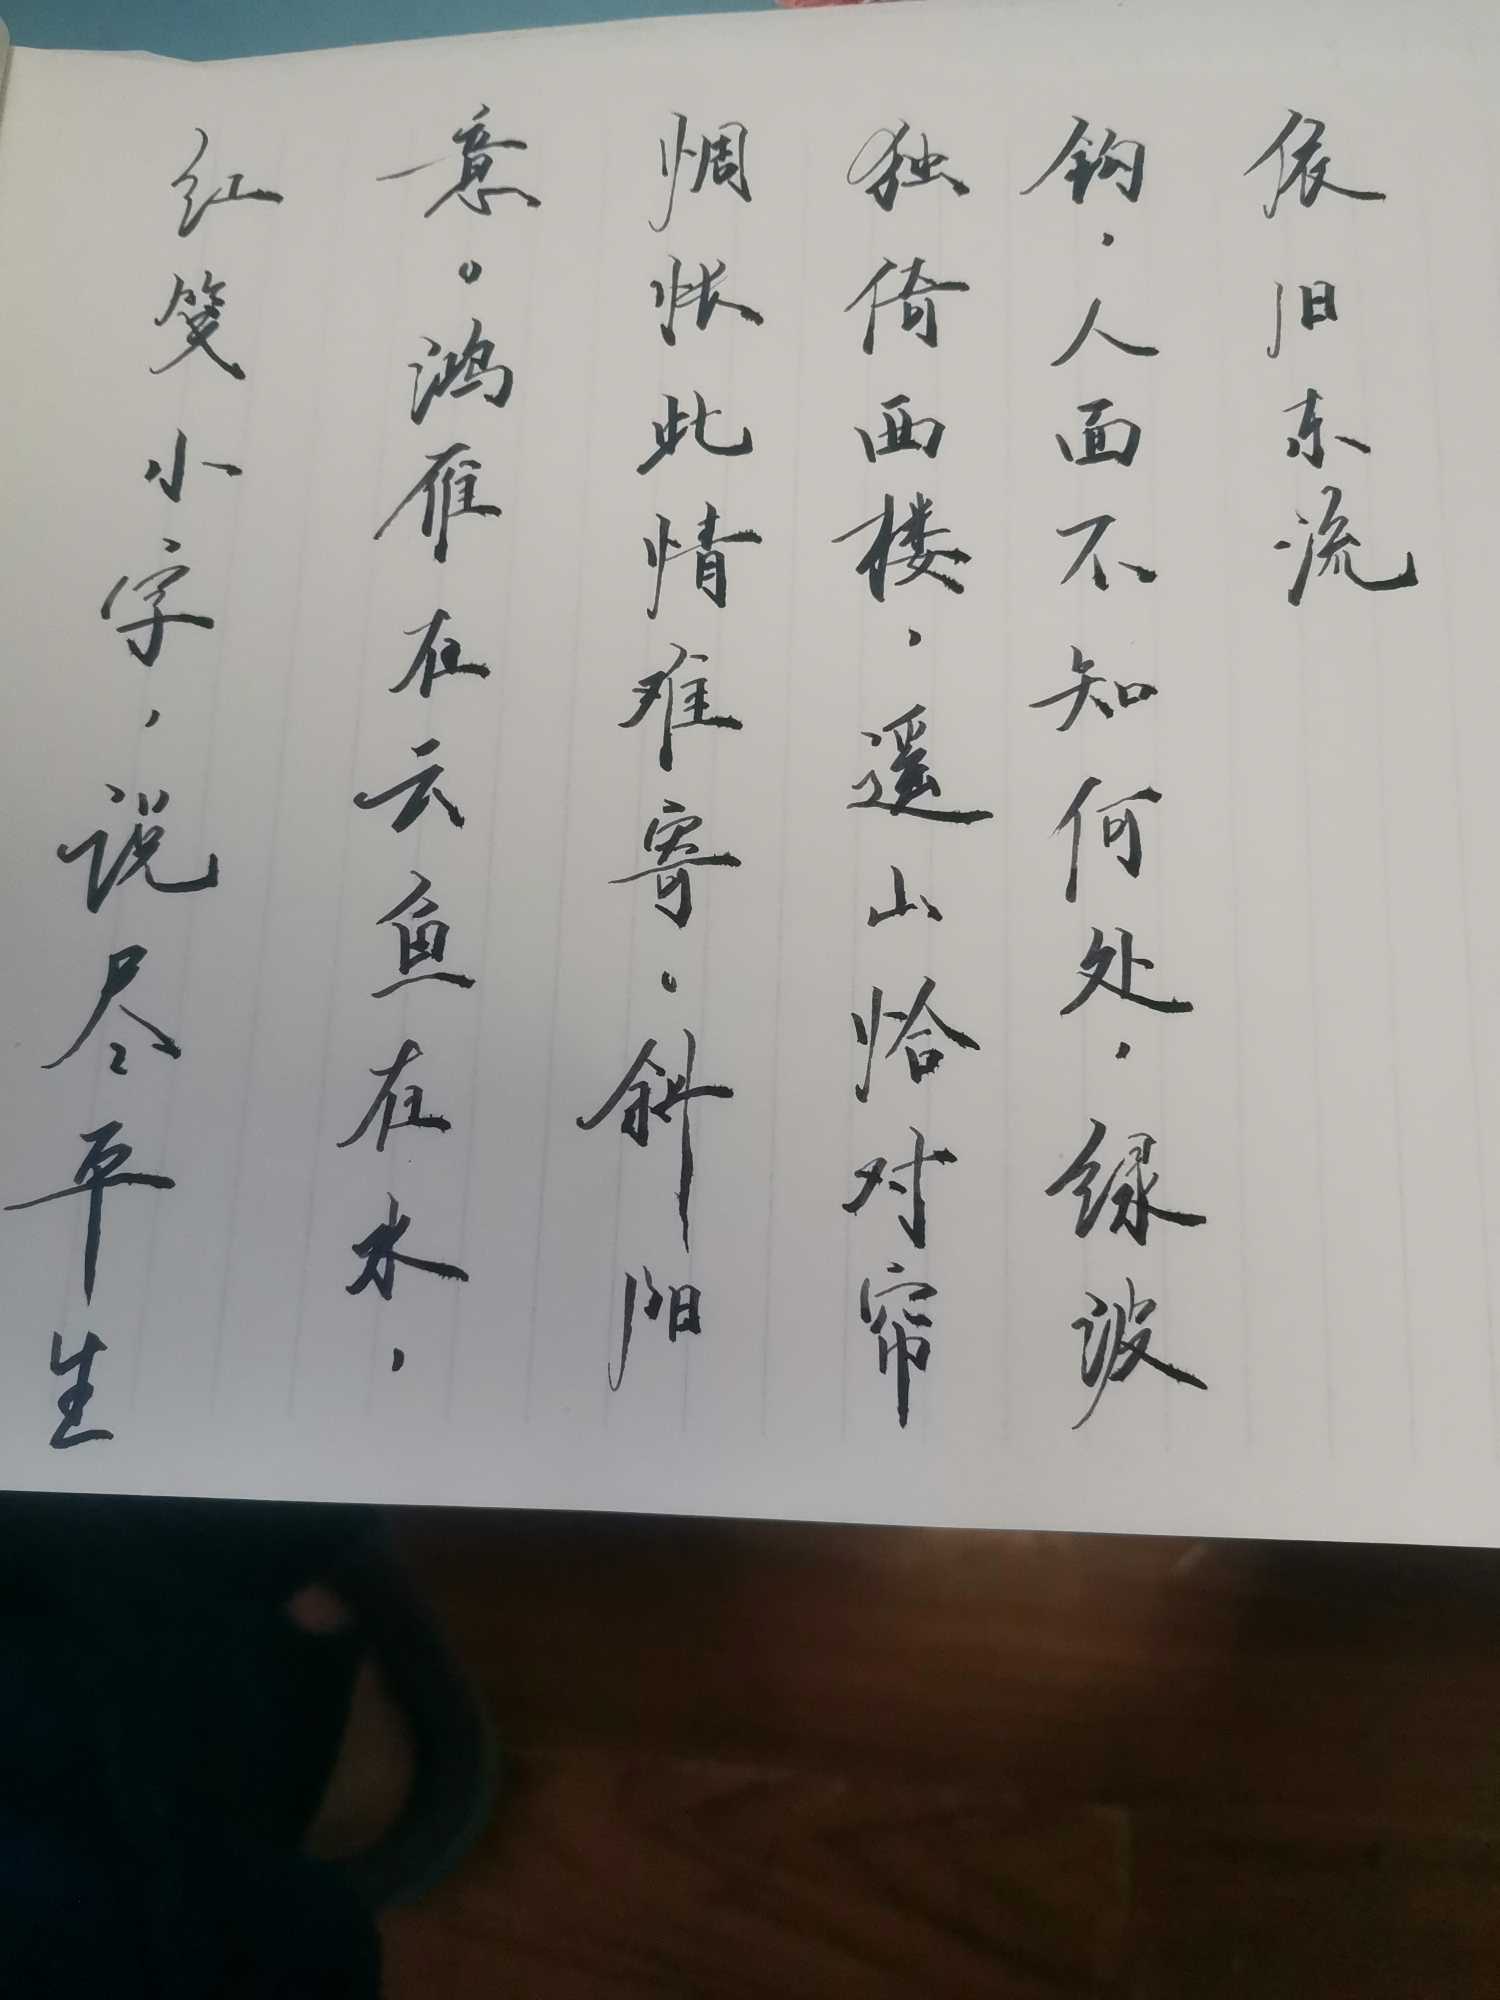 红笺小字，说尽平生
意。鸿雁在云鱼在水，
惆怅此情难寄。斜阳
独倚西楼，遥山恰对帘
钩，人面不知何处，绿波
依旧东流